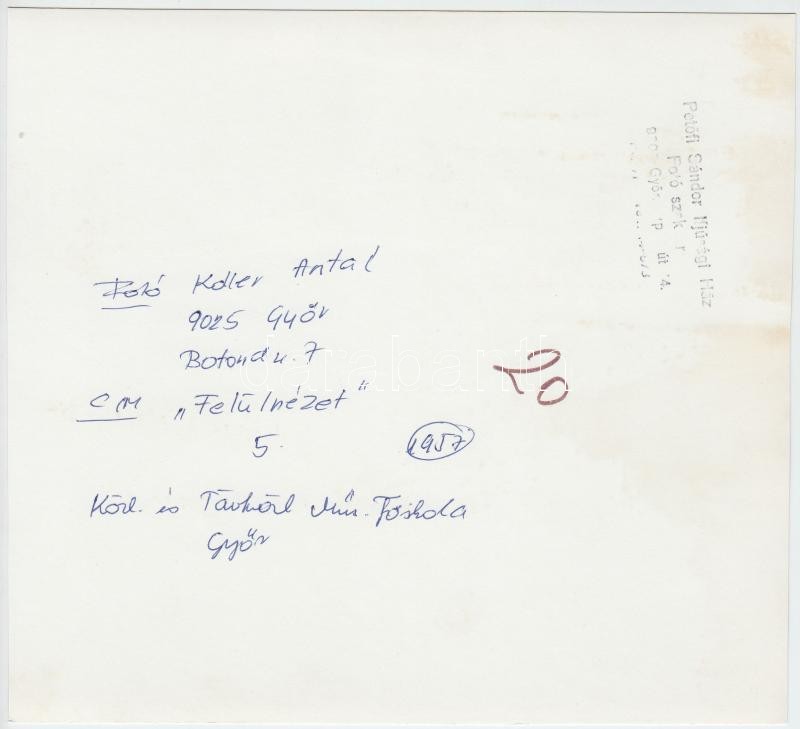 Petőfi Sándor Ifjúsági Ház
Győr
út
Fotó Koller Antal
9025 Győr
Botond u. 7
CÍM „Felülnézet"
5.
1957
20
Közl. és Távközl Műsz. Főiskola
Győr
darabanth